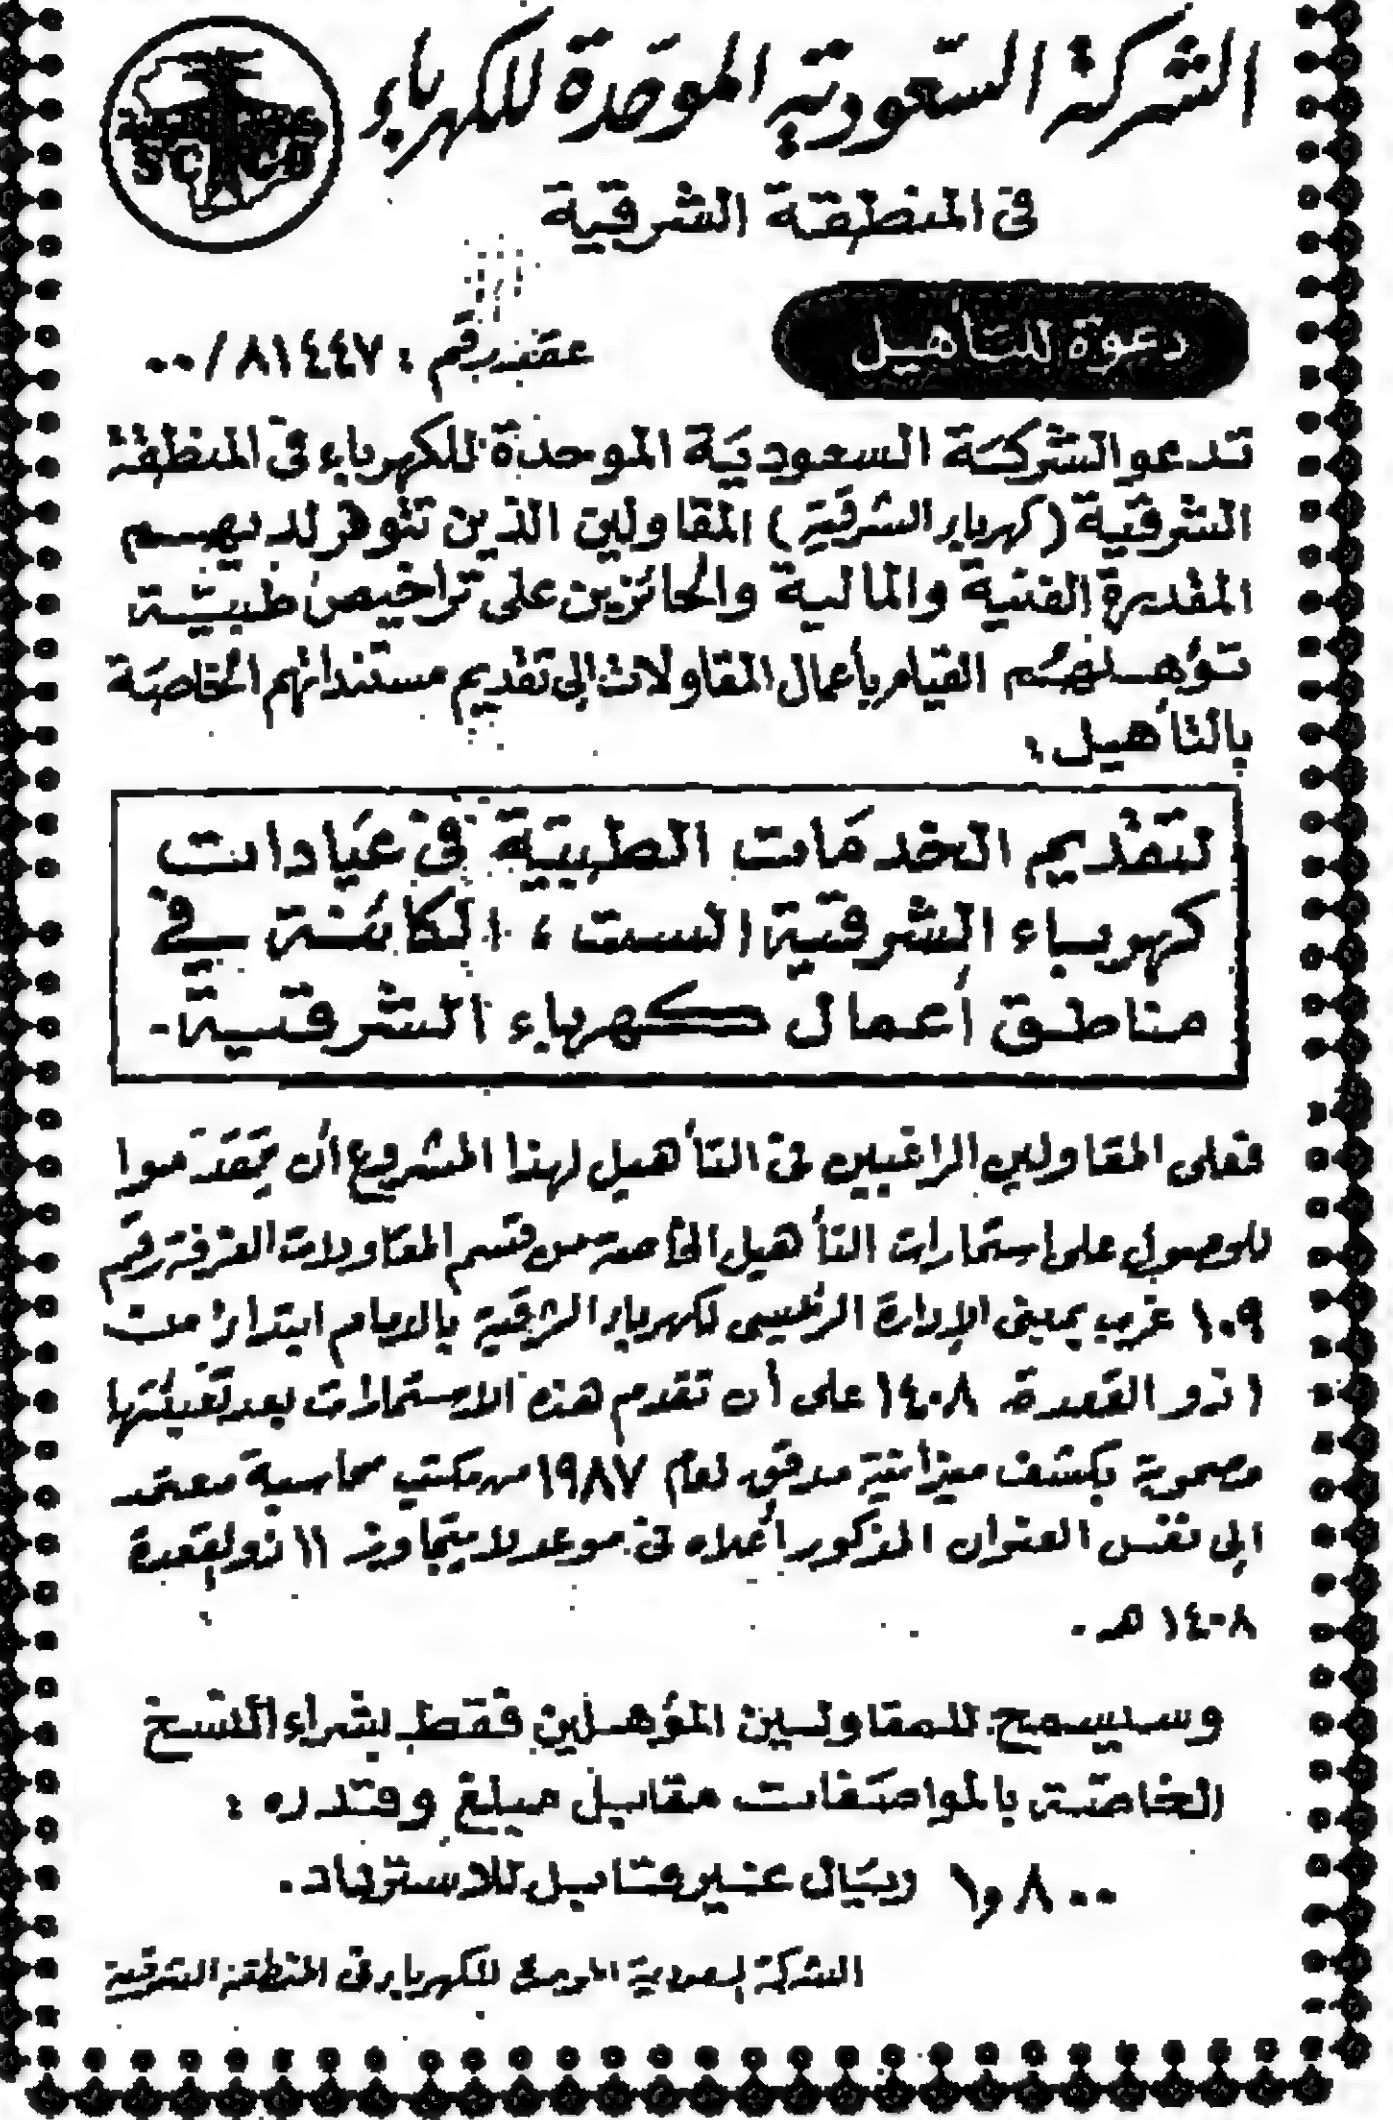 الشركة السعودية الموحدة للكهرباء
SCECO
في المنطقة الشرقية
دعوة للتأهيل
عقد رقم : ٨١٤٤٧ / ٠٠
تدعو الشركة السعودية الموحدة للكهرباء في المنطقة
الشرقية (كهرباء الشرقية) المقاولين الذين تتوفر لديهم
المقدرة الفنية والمالية والحائزين على تراخيص طبية
تؤهلهم القيام بأعمال المقاولات إلى تقديم مستنداتهم الخاصة
بالتأهيل :
لتقديم الخدمات الطبية في عيادات
كهرباء الشرقية الست ، الكائنة في
مناطق أعمال كهرباء الشرقية .
فعلى المقاولين الراغبين في التأهيل لهذا المشروع أن يتقدموا
للوصول على استمارات التأهيل الخاصة من قسم المقاولات الغرفة رقم
١٠٩ غرب بمبنى الإدارة الرئيسي لكهرباء الشرقية بالدمام ابتداءً من
١ ذو القعدة ١٤٠٨ على أن تقدم هذه الاستمارات بعد تعبئتها
مصحوبة بكشف ميزانية مدقق لعام ١٩٨٧ من مكتب محاسبة معتمد
الى نفس العنوان المذكور أعلاه في موعد لا يتجاوز ١١ ذو القعدة
١٤٠٨ هـ .
وسيسمح للمقاولين المؤهلين فقط بشراء النسخ
الخاصة بالمواصفات مقابل مبلغ وقدره :
١,٨٠٠ ريال غير قابل للاسترداد .
الشركة السعودية الموحدة للكهرباء في المنطقة الشرقية